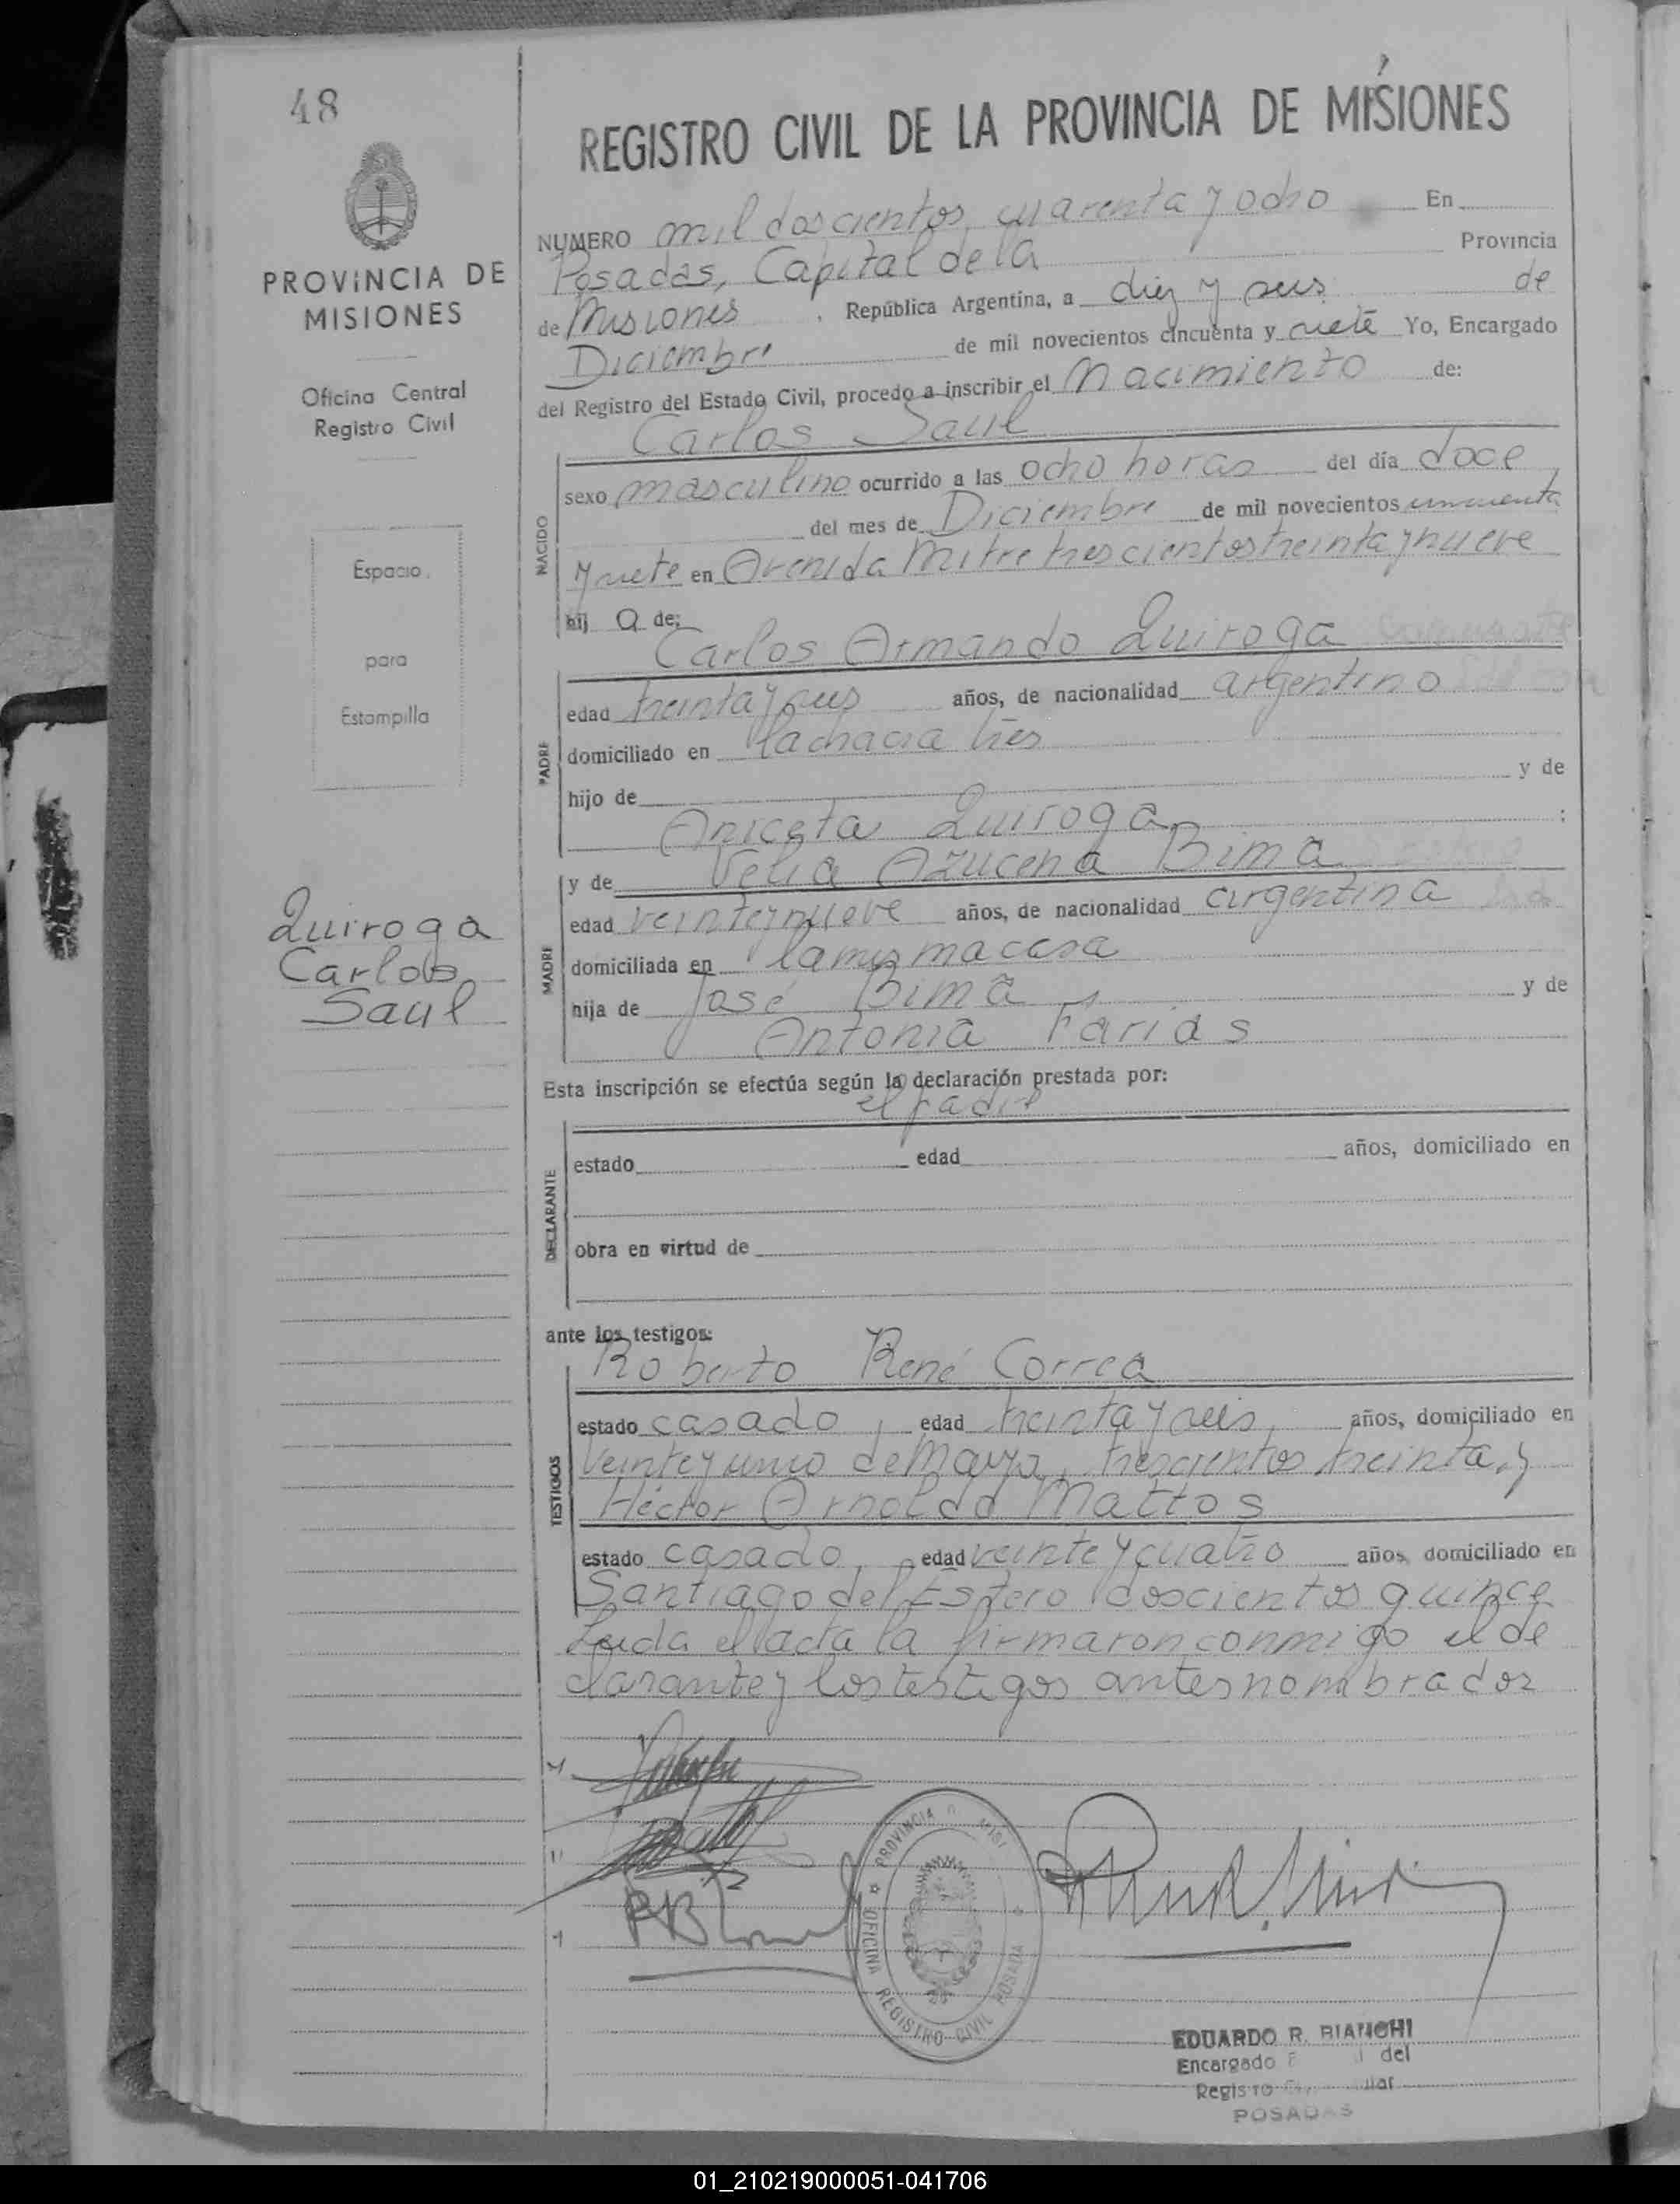 48
PROVINCIA DE
MISIONES
Oficina Central
Registro Civil
Espacio
para
Estampilla
Quiroga
Carlos
Saul
REGISTRO CIVIL DE LA PROVINCIA DE MISIONES
NUMERO mil doscientos cuarenta y ocho En
Posadas, Capital de la Provincia
de Misiones, República Argentina, a diez y seis de
Diciembre de mil novecientos cincuenta y siete Yo, Encargado
del Registro del Estado Civil, procedo a inscribir el Nacimiento de:
Carlos Saul
NACIDO
sexo masculino ocurrido a las ocho horas del día doce
del mes de Diciembre de mil novecientos cincuenta
y siete en Avenida Mitre trescientos treinta y nueve
hij o de:
Carlos Armando Quiroga
PADRE
edad treinta y seis años, de nacionalidad argentino
domiciliado en la chacra tres
hijo de y de
Aniceta Quiroga ;
y de Velia Azucena Bima
MADRE
edad veintey nueve años, de nacionalidad argentina
domiciliada en la misma casa
hija de José Bima y de
Antonia Farias
Esta inscripción se efectúa según la declaración prestada por:
el padre
DECLARANTE
estado edad años, domiciliado en
obra en virtud de
ante los testigos:
Roberto René Correa
TESTIGOS
estado casado, edad treinta y seis, años, domiciliado en
Veinte y cinco de Mayo, trescientos treinta, y
Héctor Arnoldo Mattos
estado casado, edad veinte y cuatro años, domiciliado en
Santiago del Estero doscientos quince
Leida el acta la firmaron conmigo el de
clarante y los testigos antes nombrados
PROVINCIA D MISI
OFICINA REGISTRO CIVIL POSADA
EDUARDO R. BIANCHI
Encargado del
Registro
POSADAS
01_210219000051-041706